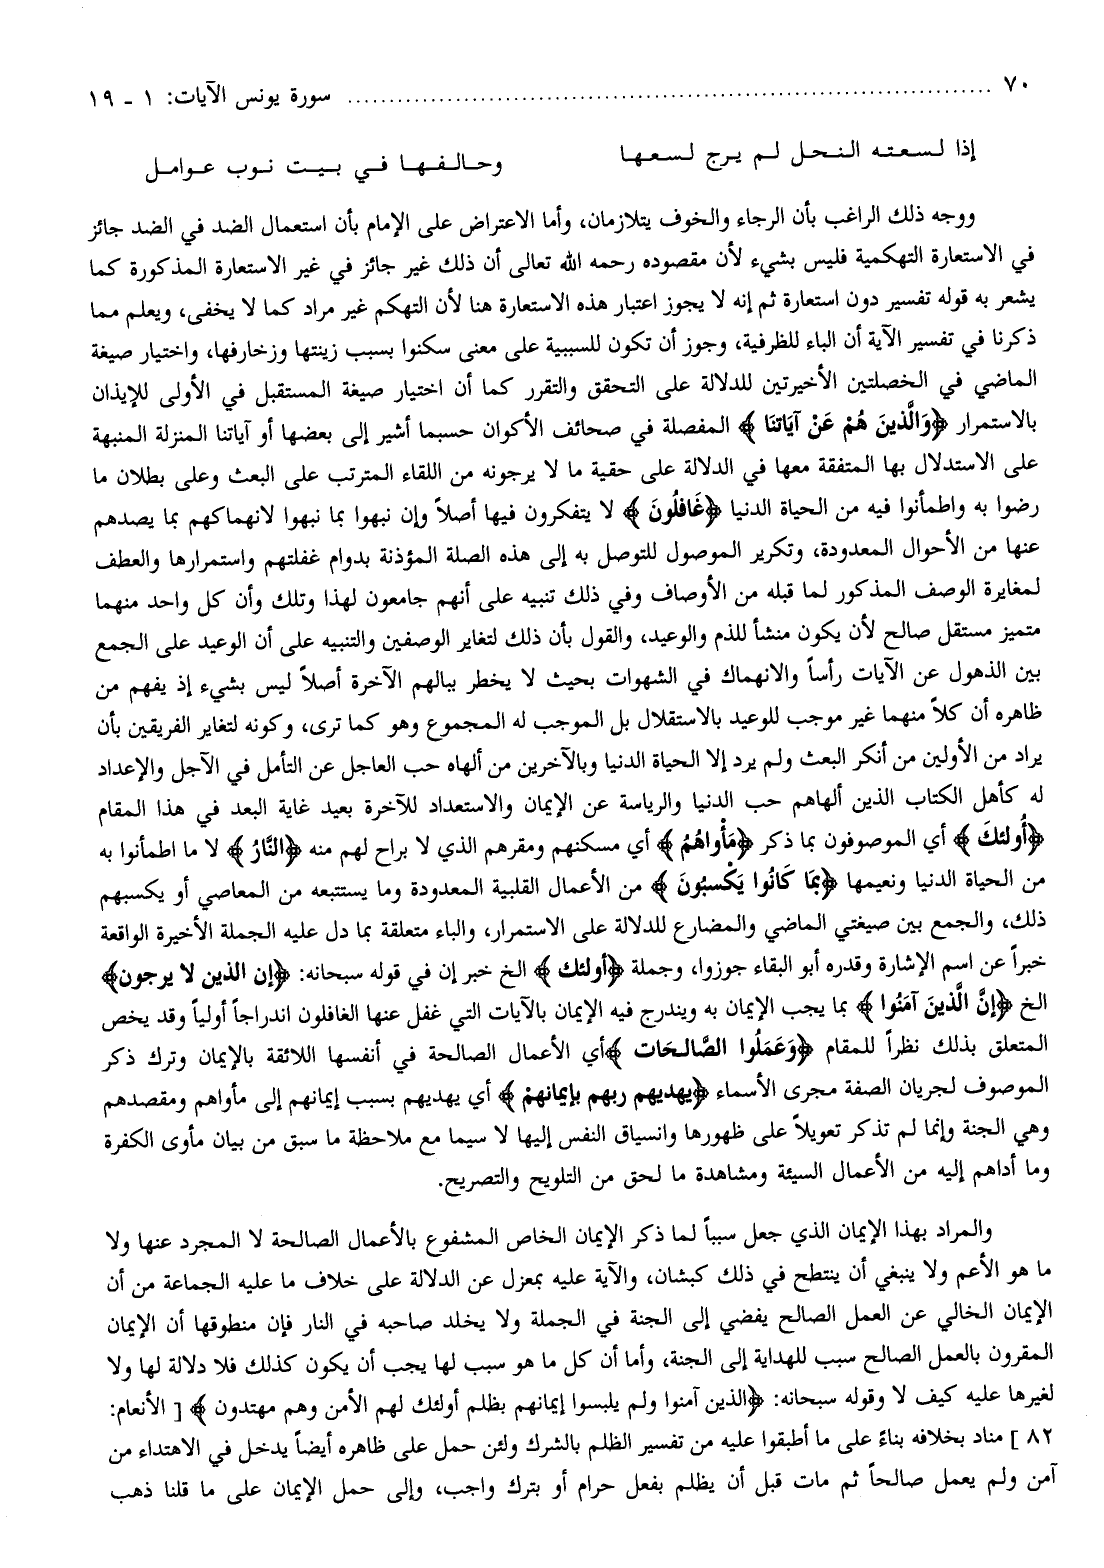 ٧٠ ........................................................ سورة يونس الآيات: ١ - ١٩
إذا لسعته النحل لم يرج لسعها وحالفها في بيت نوب عوامل
ووجه ذلك الراغب بأن الرجاء والخوف يتلازمان، وأما الاعتراض على الإمام بأن استعمال الضد في الضد جائز
في الاستعارة التهكمية فليس بشيء لأن مقصوده رحمه الله تعالى أن ذلك غير جائز في غير الاستعارة المذكورة كما
يشعر به قوله تفسير دون استعارة ثم إنه لا يجوز اعتبار هذه الاستعارة هنا لأن التهكم غير مراد كما لا يخفى، ويعلم مما
ذكرنا في تفسير الآية أن الباء للظرفية، وجوز أن تكون للسببية على معنى سكنوا بسبب زينتها وزخارفها، واختيار صيغة
الماضي في الخصلتين الأخيرتين للدلالة على التحقق والتقرر كما أن اختيار صيغة المستقبل في الأولى للإيذان
بالاستمرار ﴿وَالَّذِينَ هُمْ عَنْ آيَاتِنَا﴾ المفصلة في صحائف الأكوان حسبما أشير إلى بعضها أو آياتنا المنزلة المنبهة
على الاستدلال بها المتفقة معها في الدلالة على حقية ما لا يرجونه من اللقاء المترتب على البعث وعلى بطلان ما
رضوا به واطمأنوا فيه من الحياة الدنيا ﴿غَافِلُونَ﴾ لا يتفكرون فيها أصلاً وإن نبهوا بما نبهوا لانهماكهم بما يصدهم
عنها من الأحوال المعدودة، وتكرير الموصول للتوصل به إلى هذه الصلة المؤذنة بدوام غفلتهم واستمرارها والعطف
لمغايرة الوصف المذكور لما قبله من الأوصاف وفي ذلك تنبيه على أنهم جامعون لهذا وتلك وأن كل واحد منهما
متميز مستقل صالح لأن يكون منشأ للذم والوعيد، والقول بأن ذلك لتغاير الوصفين والتنبيه على أن الوعيد على الجمع
بين الذهول عن الآيات رأساً والانهماك في الشهوات بحيث لا يخطر ببالهم الآخرة أصلاً ليس بشيء إذ يفهم من
ظاهره أن كلاً منهما غير موجب للوعيد بالاستقلال بل الموجب له المجموع وهو كما ترى، وكونه لتغاير الفريقين بأن
يراد من الأولين من أنكر البعث ولم يرد إلا الحياة الدنيا وبالآخرين من ألهاه حب العاجل عن التأمل في الآجل والإعداد
له كأهل الكتاب الذين ألهاهم حب الدنيا والرياسة عن الإيمان والاستعداد للآخرة بعيد غاية البعد في هذا المقام
﴿أُولئِكَ﴾ أي الموصوفون بما ذكر ﴿مَأْوَاهُمُ﴾ أي مسكنهم ومقرهم الذي لا براح لهم منه ﴿النَّارُ﴾ لا ما اطمأنوا به
من الحياة الدنيا ونعيمها ﴿بِمَا كَانُوا يَكْسِبُونَ﴾ من الأعمال القلبية المعدودة وما يستتبعه من المعاصي أو يكسبهم
ذلك، والجمع بين صيغتي الماضي والمضارع للدلالة على الاستمرار، والباء متعلقة بما دل عليه الجملة الأخيرة الواقعة
خبراً عن اسم الإشارة وقدره أبو البقاء جوزوا، وجملة ﴿أولئك﴾ الخ خبر إن في قوله سبحانه: ﴿إن الذين لا يرجون﴾
الخ ﴿إِنَّ الَّذِينَ آمَنُوا﴾ بما يجب الإيمان به ويندرج فيه الإيمان بالآيات التي غفل عنها الغافلون اندراجاً أولياً وقد يخص
المتعلق بذلك نظراً للمقام ﴿وَعَمِلُوا الصَّالِحَات﴾أي الأعمال الصالحة في أنفسها اللائقة بالإيمان وترك ذكر
الموصوف لجريان الصفة مجرى الأسماء ﴿يهديهم ربهم بإيمانهمْ﴾ أي يهديهم بسبب إيمانهم إلى مأواهم ومقصدهم
وهي الجنة وإنما لم تذكر تعويلاً على ظهورها وانسياق النفس إليها لا سيما مع ملاحظة ما سبق من بيان مأوى الكفرة
وما أداهم إليه من الأعمال السيئة ومشاهدة ما لحق من التلويح والتصريح.
والمراد بهذا الإيمان الذي جعل سبباً لما ذكر الإيمان الخاص المشفوع بالأعمال الصالحة لا المجرد عنها ولا
ما هو الأعم ولا ينبغي أن ينتطح في ذلك كبشان، والآية عليه بمعزل عن الدلالة على خلاف ما عليه الجماعة من أن
الإيمان الخالي عن العمل الصالح يفضي إلى الجنة في الجملة ولا يخلد صاحبه في النار فإن منطوقها أن الإيمان
المقرون بالعمل الصالح سبب للهداية إلى الجنة، وأما أن كل ما هو سبب لها يجب أن يكون كذلك فلا دلالة لها ولا
لغيرها عليه كيف لا وقوله سبحانه: ﴿الذين آمنوا ولم يلبسوا إيمانهم بظلم أولئك لهم الأمن وهم مهتدون﴾ [ الأنعام:
٨٢ ] مناد بخلافه بناءً على ما أطبقوا عليه من تفسير الظلم بالشرك ولئن حمل على ظاهره أيضاً يدخل في الاهتداء من
آمن ولم يعمل صالحاً ثم مات قبل أن يظلم بفعل حرام أو بترك واجب، وإلى حمل الإيمان على ما قلنا ذهب